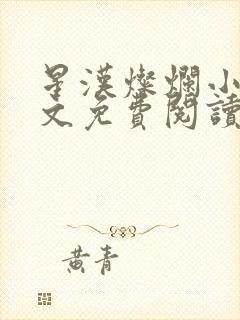 星漢燦爛小
文免費閱讀
黃青